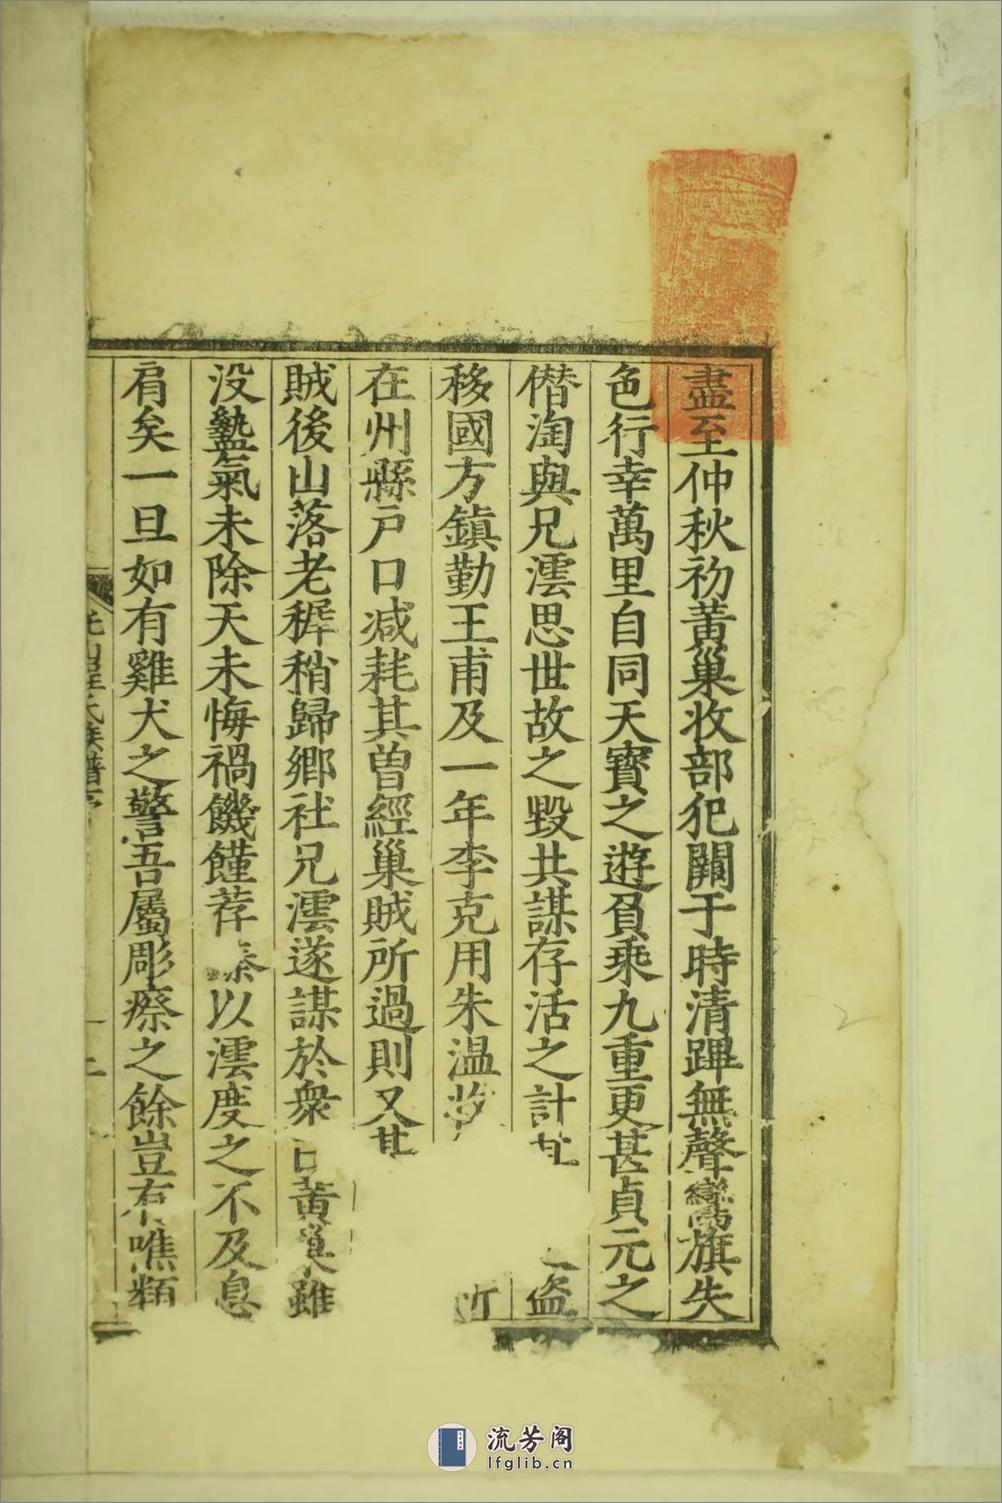 盡至仲秋初黃巢收部犯闕于時清蹕無聲鸞旗失
色行幸萬里自同天寶之遊負乘九重更甚貞元之
僭淘與兄澐思世故之毀共謀存活之計盜
移國方鎮勤王甫及一年李克用朱溫
在州縣戶口減耗其曾經巢賊所過則又甚
賊後山落老稺稍歸鄉社兄澐遂謀於衆曰黃巢雖
没蠚氣未除天未悔禍饑饉荐臻以澐度之不及息
肩矣一旦如有雞犬之警吾屬彫瘵之餘豈有噍類
氏族譜序
流芳阁
lfglib.cn